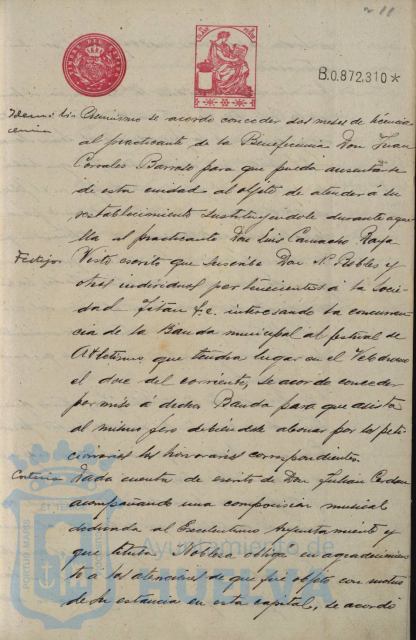 B.0.872.310*
Idem: li- Asimismo se acordó conceder dos meses de licencia
cencia al practicante de la Beneficencia Don Juan
Corrales Barraso para que pueda ausentarse
de esta ciudad al objeto de atender á su
restablecimiento sustituyendole durante aque-
lla el practicante Don Luis Camacho Raya
Festejos Visto escrito que suscribe Don N. Robles y
otros individuos pertenecientes á la socie-
dad Titan F.C. interesando la concurren-
cia de la Banda municipal al festival de
Atletismo que tendra lugar en el Velodromo
el doce del corriente, se acordo conceder
permiso á dicha Banda para que asista
al mismo pero debiendole abonar por los peti-
cionarios los honorarios correspondientes.
Dada cuenta de escrito de Don Julian
acompañando una composicion musical
dedicada al Excelentisimo Ayuntamiento y
que titula Nobleza obliga en agradecimien-
to a las atenciones de que fue objeto con motivo
de su estancia en esta capital, se acordó
Ayuntamiento de
HUELVA